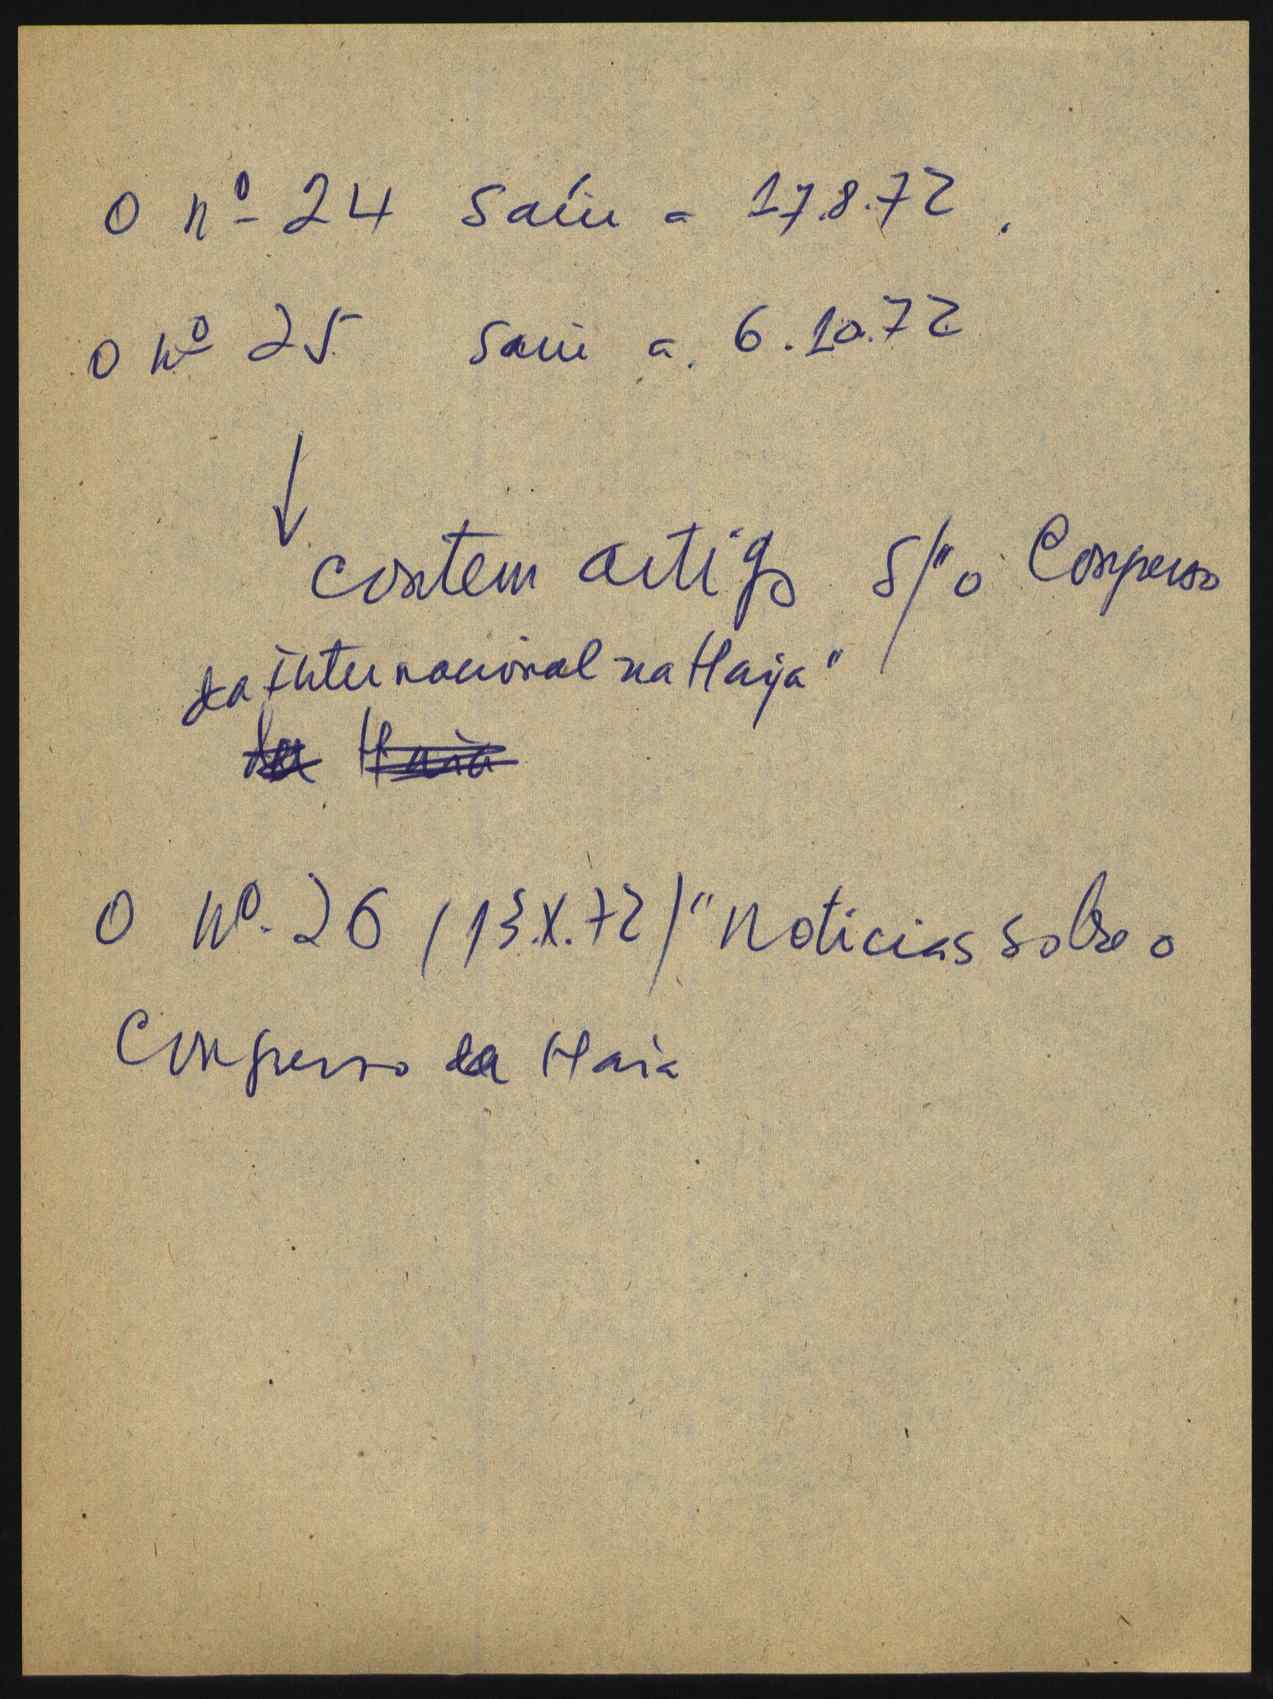 O nº 24 saíu a 17.8.72.
O nº 25 saiu a. 6.10.72
↓
contem artigo s/ "o Congresso
da internacional na Haija"
da Haia
O nº. 26 (13.X.72) "Noticias sobre o
Congresso da Haia